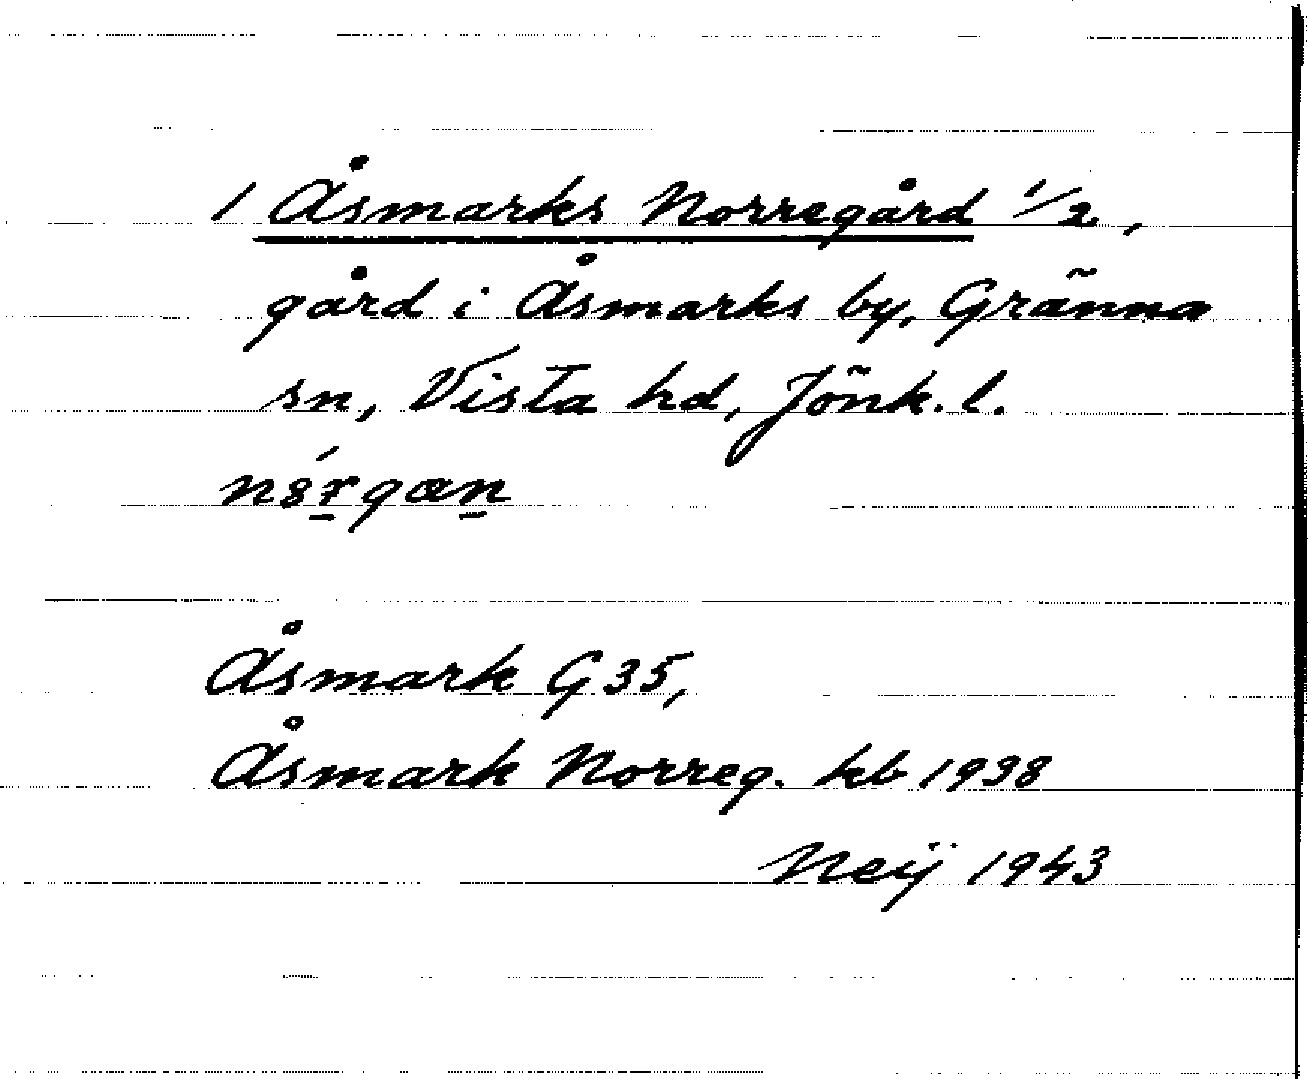 / Åsmarks Norregård 1/2,
gård i Åsmarks by, Gränna
sn, Vista hd, Jönk. l.
Åsmark G 35,
Åsmark Norreg. kb 1938
Neij 1943